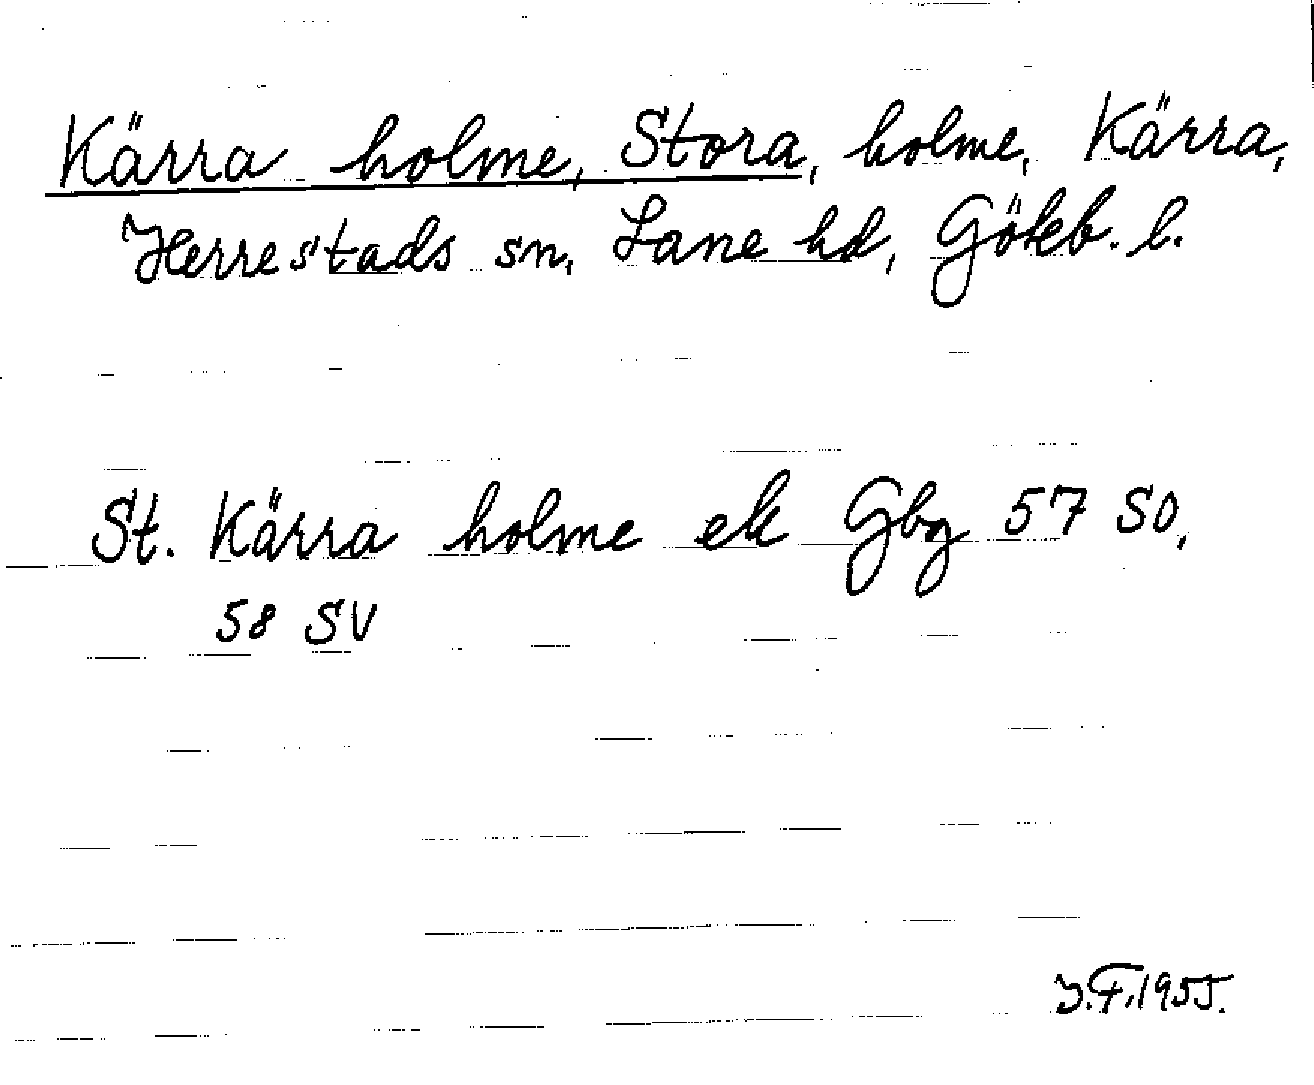 Kärra holme, Stora, holme, Kärra,
Herrestads sn, Lane hd, Gökb. l.
St. Kärra holme ek Gbg 57 SO,
58 SV
J.F. 1955.